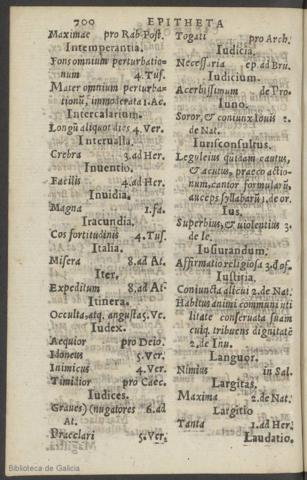 700 EPITHETA
Maximae pro Rab. Post.
Intemperantia.
Fons omnium perturbatio-
num 4. Tus.
Mater omnium perturba-
tionū, immoderata 1. Ac.
Intercalarium.
Longū aliquot dies 4. Ver.
Interualla.
Crebra 3. ad Her.
Inuentio.
Facilis 4. ad Her.
Inuidia.
Magna 1. fa.
Iracundia.
Cos fortitudinis 4. Tus.
Italia.
Misera 8. ad At.
Iter.
Expeditum 8. ad At.
Itinera.
Occulta, atq. angusta 5. Ve.
Iudex.
Aequior pro Deio.
Idoneus 5. Ver.
Inimicus 4. Ver.
Timidior pro Caec.
Iudices.
Graues) (nugatores 6. ad
At.
Praeclari 5. Ver.
Togati pro Arch.
Iudicia.
Necessaria ep. ad Bru.
Iudicium.
Acerbissimum de Pro.
Iuno.
Soror, & coniunx Iouis 2.
de Nat.
Iurisconsultus.
Leguleius quidam cautus,
& acutus, praeco actio-
num, cantor formularū,
auceps syllabarū 1. de or.
Ius.
Superbius, & uiolentius 3.
de le.
Iusiurandum.
Affirmatio religiosa 3. d of.
Iustitia.
Coniuncta alicui 2. de Nat.
Habitus animi communi uti
litate conseruata suam
cuiq. tribuens dignitatē
2. de Inu.
Languor.
Nimius in Sal.
Largitas.
Maxima 2. de Nat.
Largitio
Tanta 1. ad Her.
Laudatio.
Biblioteca de Galicia